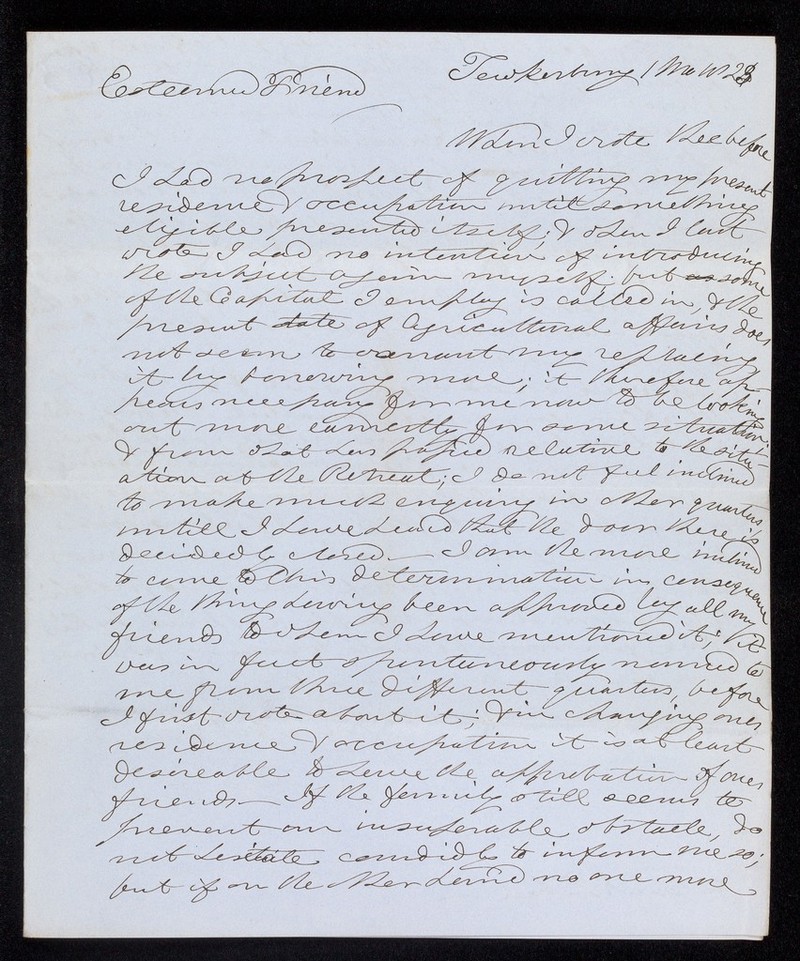 Tewkesbury 1 Mo 28
Esteemed Friend
When I wrote thee before
I had no prospect of quitting my present
residence & occupation untill something
eligible presented itself; & when I last
wrote I had no intention of introducing
the subject again myself; but as some
of the Capital I employ is called in, & the
present state of Agricultural affairs does
not seem to warrant my replacing
it by borrowing more; it therefore ap-
pears necessary for me now to be looking
out more earnestly for some situation;
& from what has passed relative to the situ-
ation at the Retreat; I do not feel inclined
to make much enquiry in other quarters
untill I have heard that the door there is
decidedly closed. — I am the more inclined
to come to this determination in consequence
of the thing having been approved by all my
friends to whom I have mentioned it; & it
was in fact spontaneously named to
me from three different quarters, before
I first wrote about it; & in changing ones
residence & occupation it is at least
desireable to have the approbation of ones
friends — If the family still seems to
prevent an insuperable obstacle, do
not hesitate candidly to inform me so;
but if on the other hand no one more